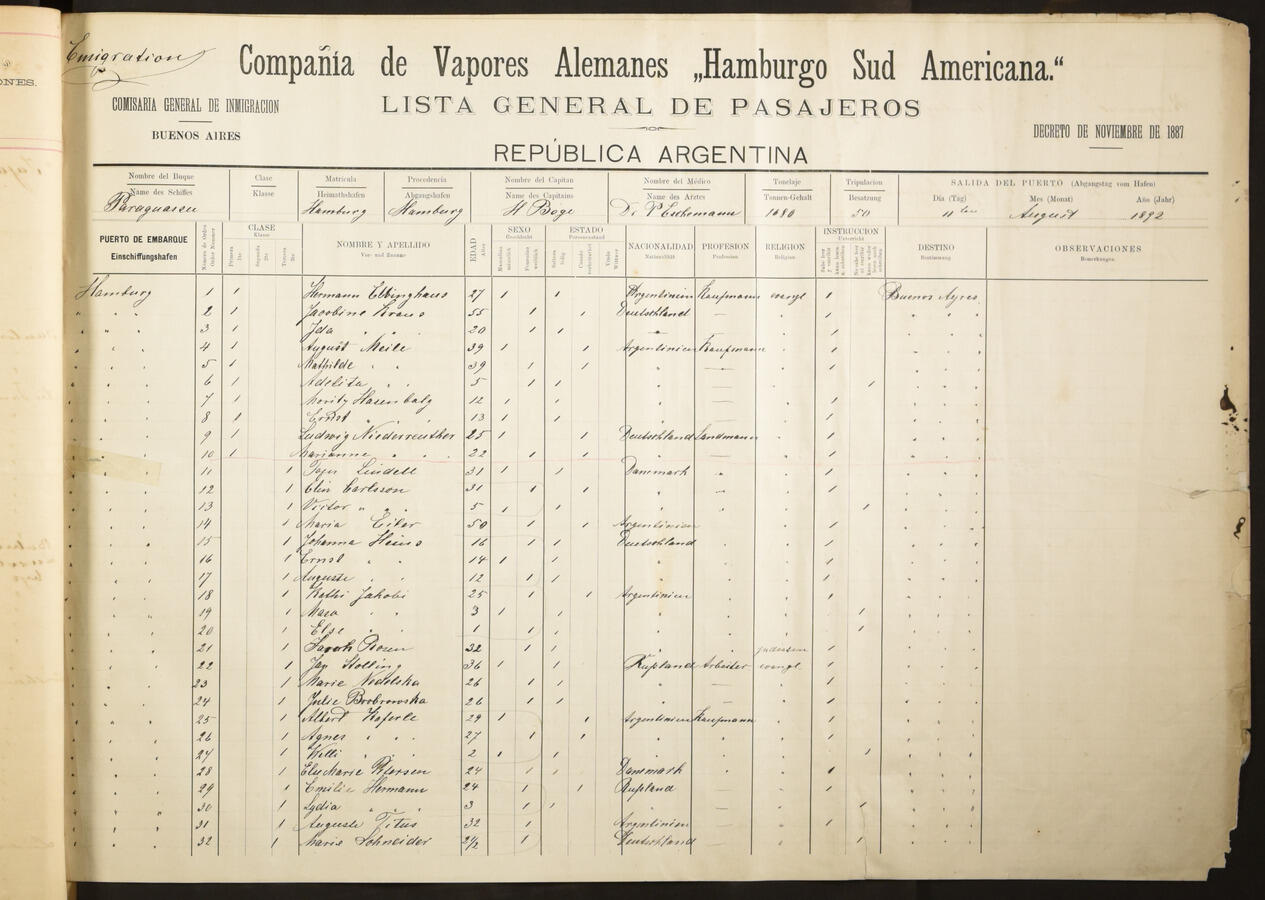 Emigration
ONES.
Compañía de Vapores Alemanes „Hamburgo Sud Americana."
COMISARIA GENERAL DE INMIGRACION
BUENOS AIRES
LISTA GENERAL DE PASAJEROS
DECRETO DE NOVIEMBRE DE 1887
REPÚBLICA ARGENTINA
Nombre del Buque Clase Matrícula Procedencia Nombre del Capitan Nombre del Médico Tonelaje Tripulacion SALIDA DEL PUERTO (Abgangstag vom Hafen)
Name des Schiffes Klasse Heimathshafen Abgangshafen Name des Capitains Name des Arztes Tonnen-Gehalt Besatzung Dia (Tag) Mes (Monat) Año (Jahr)
Paraguassu Hamburg Hamburg H Böge Dr P Eschemann 1680 50 11ten August 1892
PUERTO DE EMBARQUE Einschiffungshafen
Número de Orden Order Nummer
CLASE Klasse Primera Segunda Tercera
NOMBRE Y APELLIDO Vor- und Zuname
EDAD Alter
SEXO Geschlecht Masculino männlich Femenino weiblich
ESTADO Personenstand Soltero ledig Casado verheirathet Viudo Wittwer
NACIONALIDAD Nationalität
PROFESION Profession
RELIGION Religion
INSTRUCCION Unterricht
DESTINO Bestimmung
OBSERVACIONES Bemerkungen
Hamburg 1 1 Hermann Ebbinghaus 27 1 1 Argentinien Kaufmann evangl 1 Buenos Ayres
" 2 1 Jacobine Kraus 55 1 1 Deutschland — " 1 "
" 3 1 Ida " " 20 1 1 — " 1 "
" 4 1 August Meile 39 1 1 Argentinien Kaufmann " 1 "
" 5 1 Mathilde " " 39 1 1 " — " 1 "
" 6 1 Adelita " " 5 1 1 " — " 1 "
" 7 1 Moritz Hasenbalg 12 1 1 " — " 1 "
" 8 1 Ernst " " 13 1 1 " — " 1 "
" 9 1 Ludwig Niederreuther 25 1 1 Deutschland Landmann " 1 "
" 10 1 Marianne " " 22 1 1 " — " 1 "
" 11 1 Lindell 31 1 1 Danmark " " 1 "
" 12 1 Elin Carlsson 31 1 1 " — " 1 "
" 13 1 Victor " " 5 1 1 " " " 1 "
" 14 1 Maria 50 1 1 Argentinien " 1 "
" 15 1 Johanna Heins 16 1 1 Deutschland " " 1 "
" 16 1 Ernst " " 14 1 1 " " " 1 "
" 17 1 Auguste " " 12 1 1 " " " 1 "
" 18 1 Käthi Jakobi 25 1 1 Argentinien " 1 "
" 19 1 " " 3 1 1 " " " 1 "
" 20 1 Else " " 1 1 1 " " " 1 "
" 21 1 Sarah Rosen 32 1 1 " " 1 "
" 22 1 Jan Stolling 36 1 1 Rußland Arbeiter evangl. 1 "
" 23 1 Marie 26 1 1 " " " 1 "
" 24 1 Julie Brobrowska 26 1 1 " — " 1 "
" 25 1 Albert Käferle 29 1 1 Argentinien Kaufmann " 1 "
" 26 1 Agnes " " 27 1 1 " " " 1 "
" 27 1 Willi " " 2 1 1 " " " 1 "
" 28 1 Else Marie Petersen 24 1 1 Danmark " " 1 "
" 29 1 Emilie Hermann 24 1 1 Rußland " " 1 "
" 30 1 Lydia " " 3 1 1 " — " 1 "
" 31 1 Auguste Titus 32 1 Argentinien — " 1 "
" 32 1 Marie Schneider 24½ 1 Deutschland — " 1 "